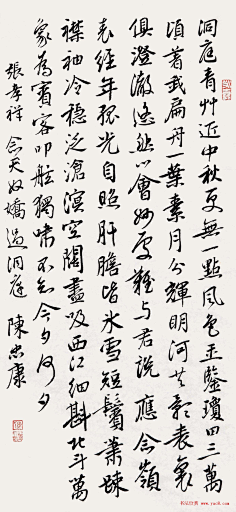 洞庭青艸近中秋更無一點風色玉鑒瓊田三萬
頃著我扁舟一葉素月分輝明河共影表裏
俱澄澈悠然心會妙處難與君說應念嶺
表經年孤光自照肝膽皆冰雪短鬢蕭疎
襟袖冷穩泛滄溟空闊盡吸西江細斟北斗萬
象為賓客叩舷獨嘯不知今夕何夕
張孝祥念奴嬌過洞庭 陳忠康